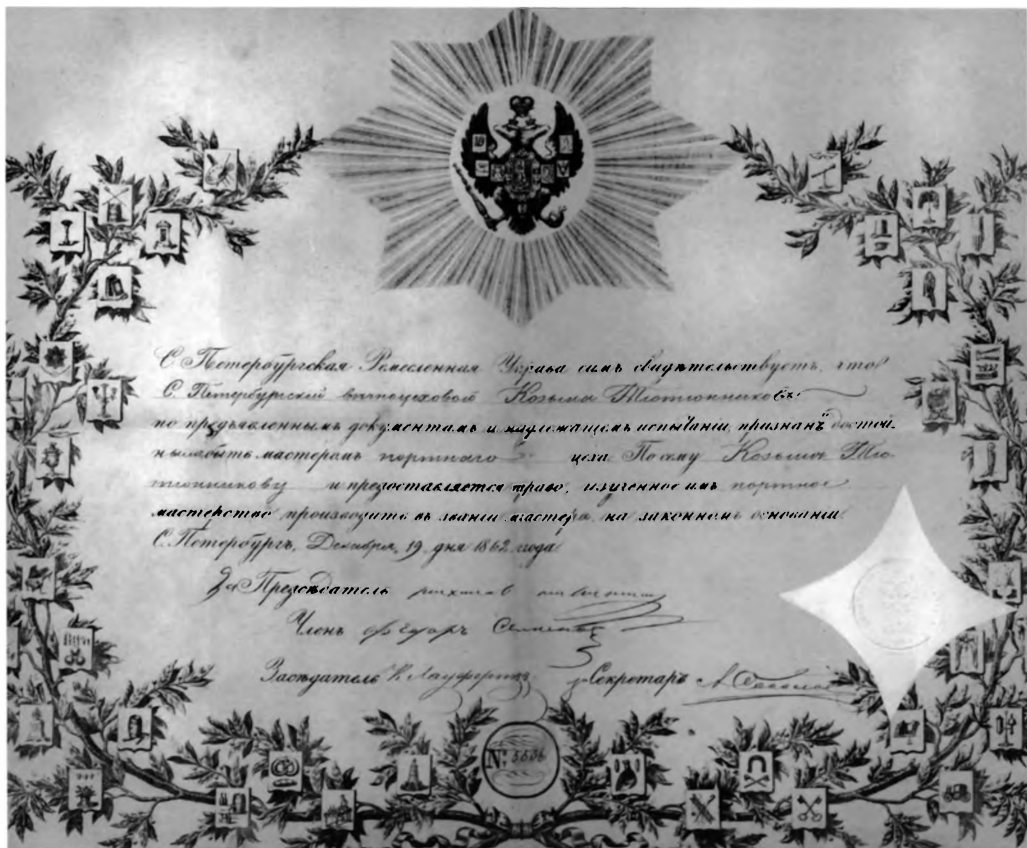 С. Петербургская Ремесленная Управа симъ свидѣтельствуетъ, что
С. Петербургский вѣчноцеховой Козьма Тютюнниковъ
по предъявленнымъ документамъ и надлежащемъ испытаніи, признанъ достой-
нымъ быть мастеромъ портнаго цеха. По сему Козьмѣ Тю-
тюнникову и предоставляется право, изученное имъ портное
мастерство производить въ званіи мастера, на законномъ основаніи.
С. Петербургъ, Декабря, 19 дня 1862 года
За Предсѣдатель
Членъ Федоръ
Засѣдатель
Секретарь
№ 5556